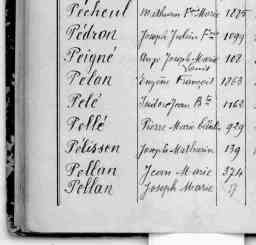 Péchcul Mathurin Fois Marie 1275
Pédron Joseph Julien 1099
Peigné Ange Joseph Marie 108
Louis
Pelan Eugène François 1263
Pelé Isidore Jean Bte 1162
Pellé Pierre Marie 929
Pelisson Joseph Mathurin 139
Pellan Jean Marie 374
Pellan Joseph Marie